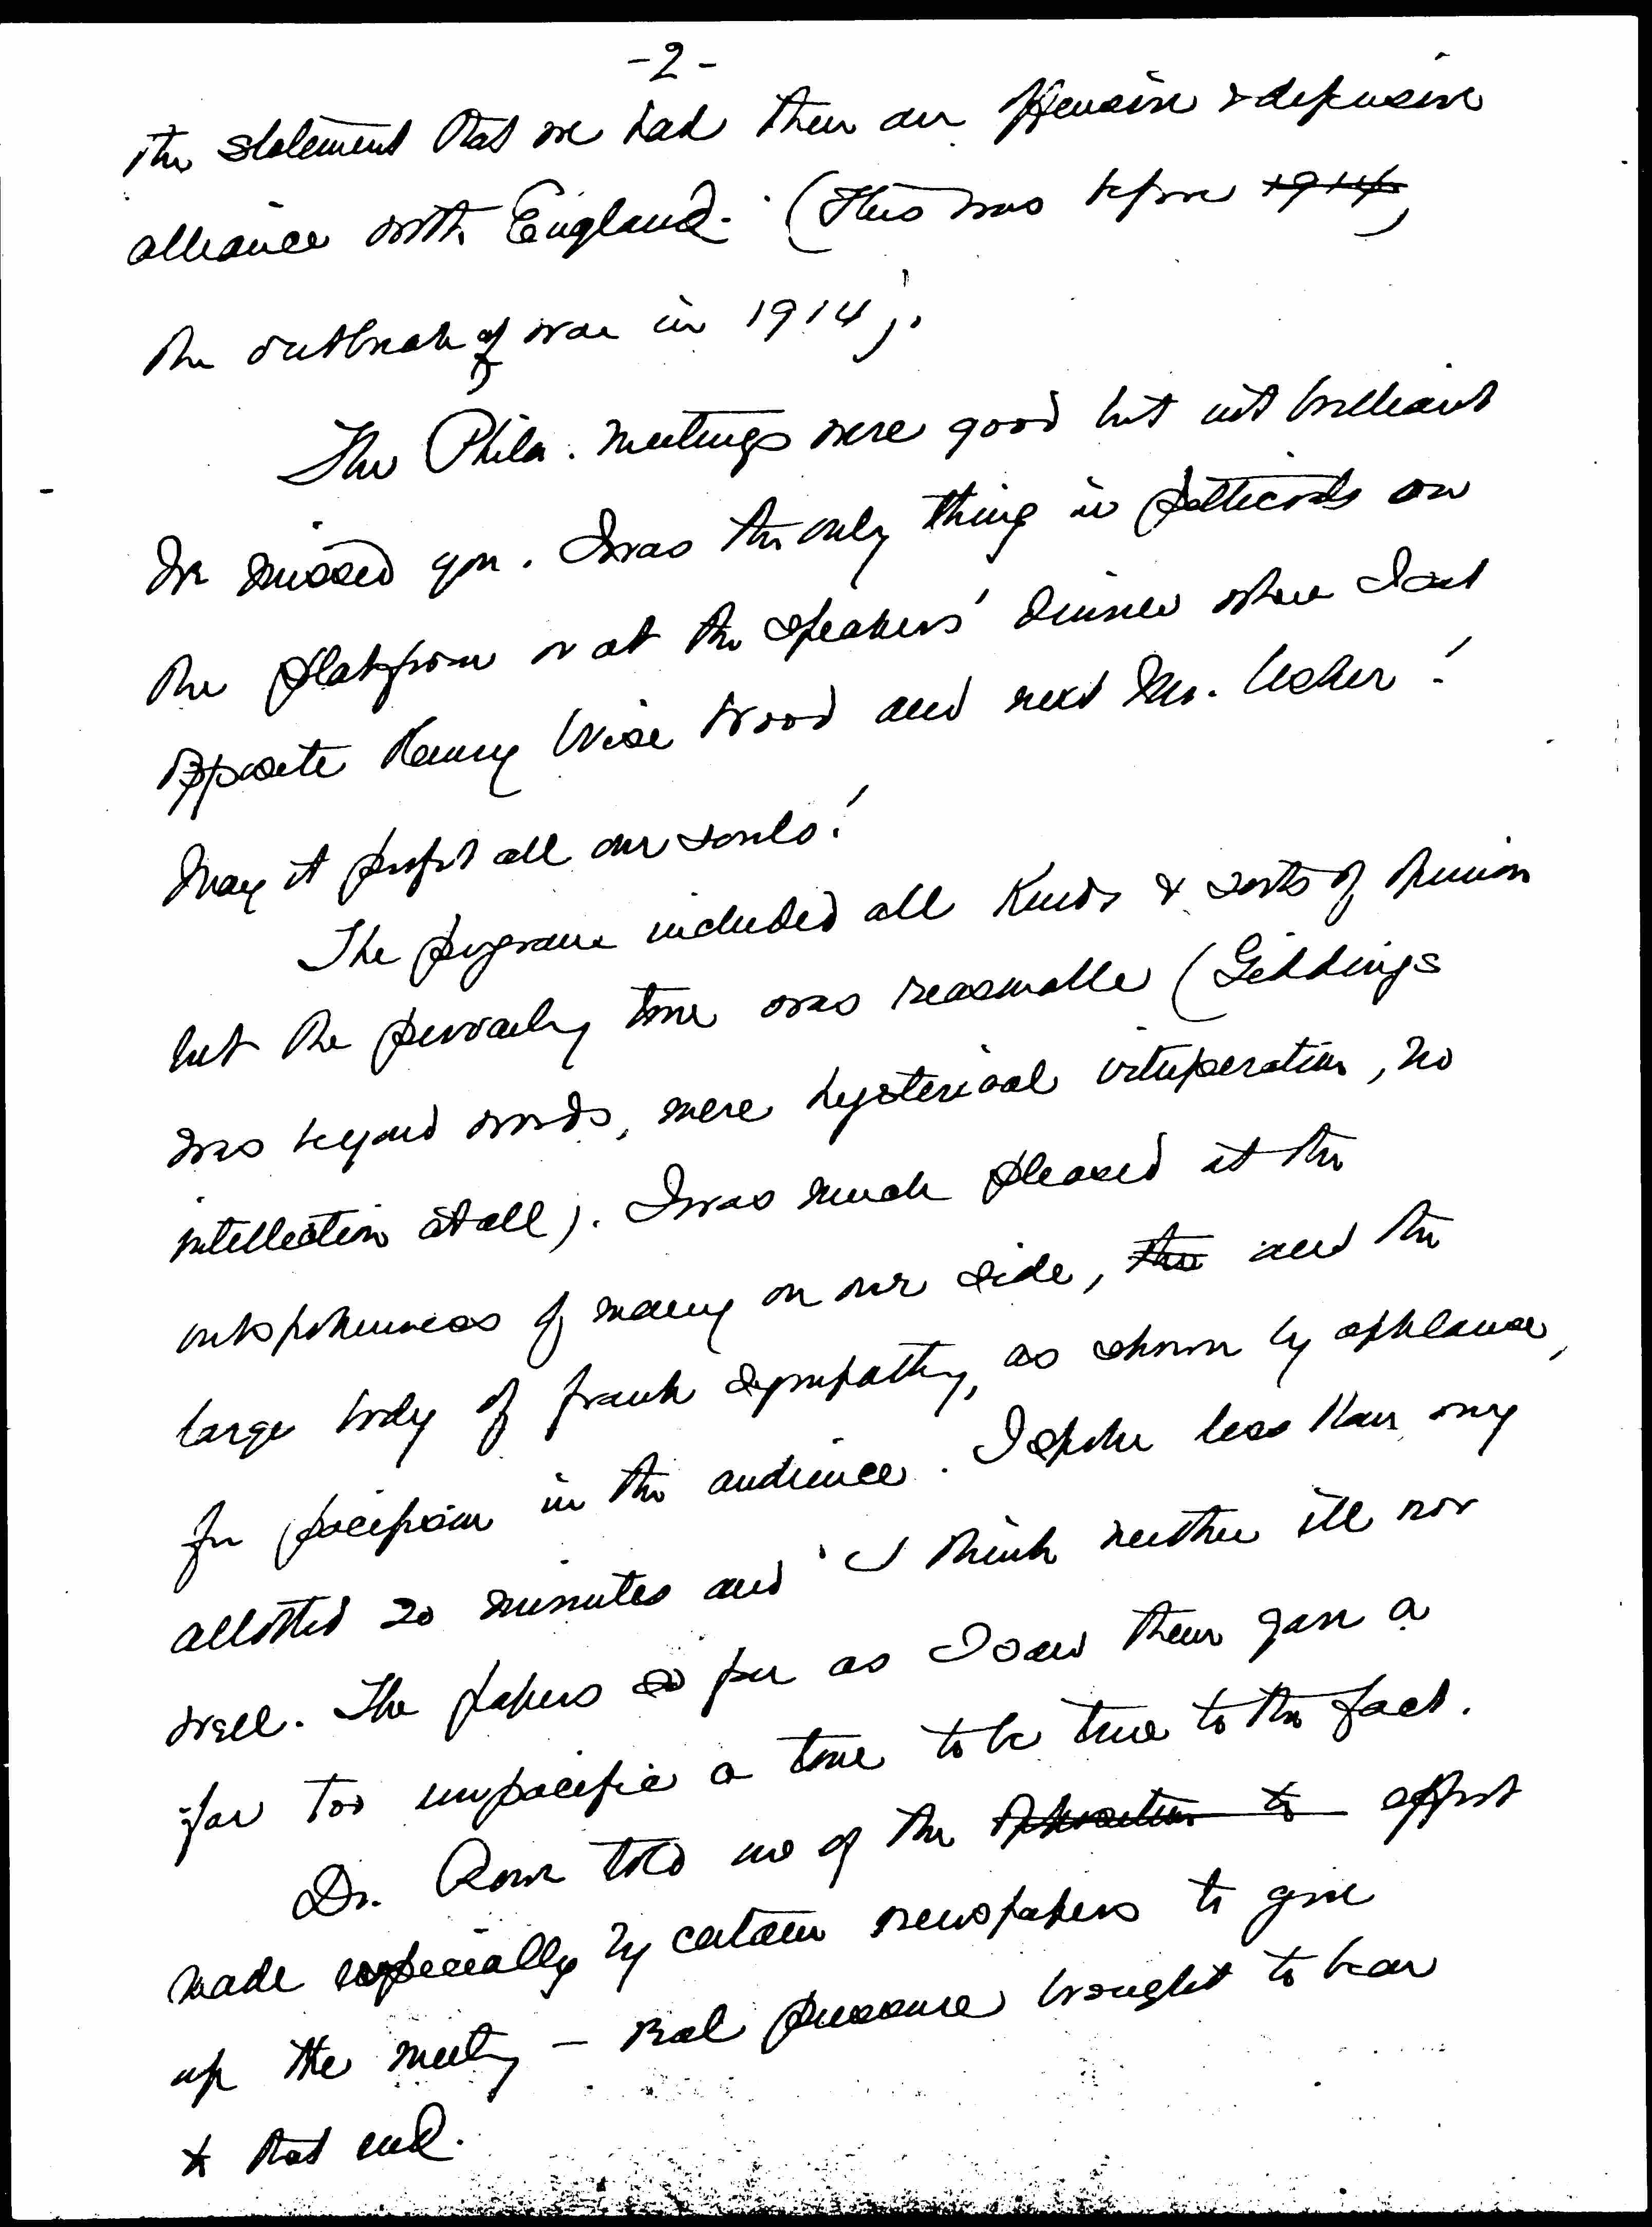 -2-
the statement that we had then an offensive & defensive
alliance with England. (This was before 1914,
the outbreak of war in 1914).
The Phila. meetings were good but not brilliant
We missed you. I was the only thing in petticoats on
the platform or at the speakers' dinner where I sat
opposite Henry Wise Wood and next Mr. Usher!
May it profit all our souls!
The programe included all kinds & sorts of opinion
but the prevailing tone was reasonable (Giddings
was beyond words, mere hysterical vituperation, no
intellection at all). I was much pleased at the
outspokenness of many on our side, the and the
large body of frank sympathy, as shown by applause,
for pacifism in the audience. I spoke less than my
allotted 20 minutes and I think neither ill nor
well. The papers so far as I saw them gave a
far too unpacific a tone to be true to the fact.
Dr. Rowe told me of the opposition to effort
made especially by certain newspapers to give
up the meeting - real pressure brought to bear
to that end.